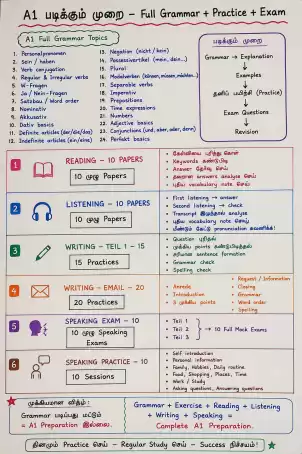 A1 படிக்கும் முறை – Full Grammar + Practice + Exam
A1 Full Grammar Topics
1. Personalpronomen
2. Sein / haben
3. Verb conjugation
4. Regular & Irregular verbs
5. W-Fragen
6. Ja / Nein-Fragen
7. Satzbau / Word order
8. Nominativ
9. Akkusativ
10. Dativ basics
11. Definite articles (der/die/das)
12. Indefinite articles (ein/eine)
13. Negation (nicht / kein)
14. Possessivartikel (mein, dein...)
15. Plural
16. Modalverben (können, müssen, möchten...)
17. Separable verbs
18. Imperativ
19. Prepositions
20. Time expressions
21. Numbers
22. Adjective basics
23. Conjunctions (und, aber, oder, denn)
24. Perfekt basics
படிக்கும் முறை
Grammar → Explanation
↓
Examples
↓
தனிப் பயிற்சி (Practice)
↓
Exam Questions
↓
Revision
1
READING – 10 PAPERS
10 முழு Papers
• கேள்வியை புரிந்து கொள்
• Keywords கண்டுபிடி
• Answer தேர்வு செய்
• தவறான answers analyse செய்
• புதிய vocabulary note செய்
2
LISTENING – 10 PAPERS
10 முழு Papers
• First listening → answer
• Second listening → check
• Transcript இருந்தால் analyse
• புதிய vocabulary note செய்
• மீண்டும் கேட்டு pronunciation கவனிக்க!
3
WRITING – TEIL 1 – 15
15 Practices
• Question புரிதல்
• முக்கிய points கண்டுபிடித்தல்
• சரியான sentence formation
• Grammar check
• Spelling check
4
WRITING – EMAIL – 20
20 Practices
• Anrede
• Introduction
• 3 முக்கிய points
• Request / Information
• Closing
• Grammar
• Word order
• Spelling
5
SPEAKING EXAM – 10
10 முழு Speaking
Exams
• Teil 1
• Teil 2
• Teil 3
→ 10 Full Mock Exams
6
SPEAKING PRACTICE – 10
10 Sessions
• Self introduction
• Personal information
• Family, Hobbies, Daily routine
• Food, Shopping, Places, Time
• Work / Study
• Asking questions, Answering questions
முக்கியமான விதி:
Grammar படிப்பது மட்டும்
= A1 Preparation இல்லை.
Grammar + Exercise + Reading + Listening
+ Writing + Speaking =
Complete A1 Preparation.
தினமும் Practice செய் – Regular Study செய் – Success நிச்சயம்!